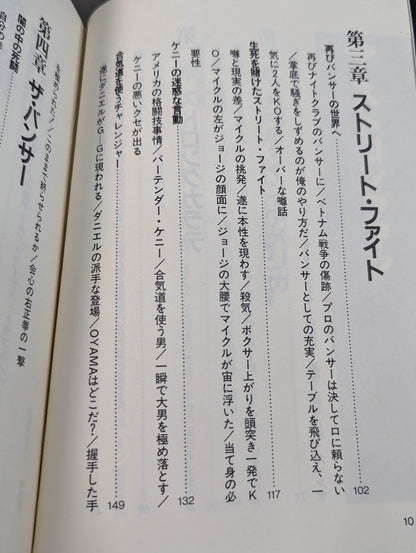 第三章 ストリート・ファイト
再びバンサーの世界へ 102
再びナイトクラブのバンサーに/ベトナム戦争の傷跡/プロのバンサーは決して口に頼らない
/掌底で騒ぎをしずめるのが俺のやり方だ/バンサーとしての充実/テーブルを飛び込え、一
気に2人をKOする/オーバーな噂話
生死を賭けたストリート・ファイト 117
噂と現実の差/マイクルの挑発/遂に本性を現わす/殺気/ボクサー上がりを頭突き一発でK
O/マイクルの左がジョージの顔面に/ジョージの大腰でマイクルが宙に浮いた/当て身の必
要性
ケニーの迷惑な言動 132
アメリカの格闘技事情/バーテンダー・ケニー/合気道を使う男/一瞬で大男を極め落とす/
ケニーの悪いクセが出る
合気道を使うチャレンジャー 149
遂にダニエルがG・Gに現われる/ダニエルの派手な登場/OYAMAはどこだ?/握手した手
10
まま眠らせられるか/会心の右正拳の一撃
第四章 ザ・バンサー
闇の中の死闘